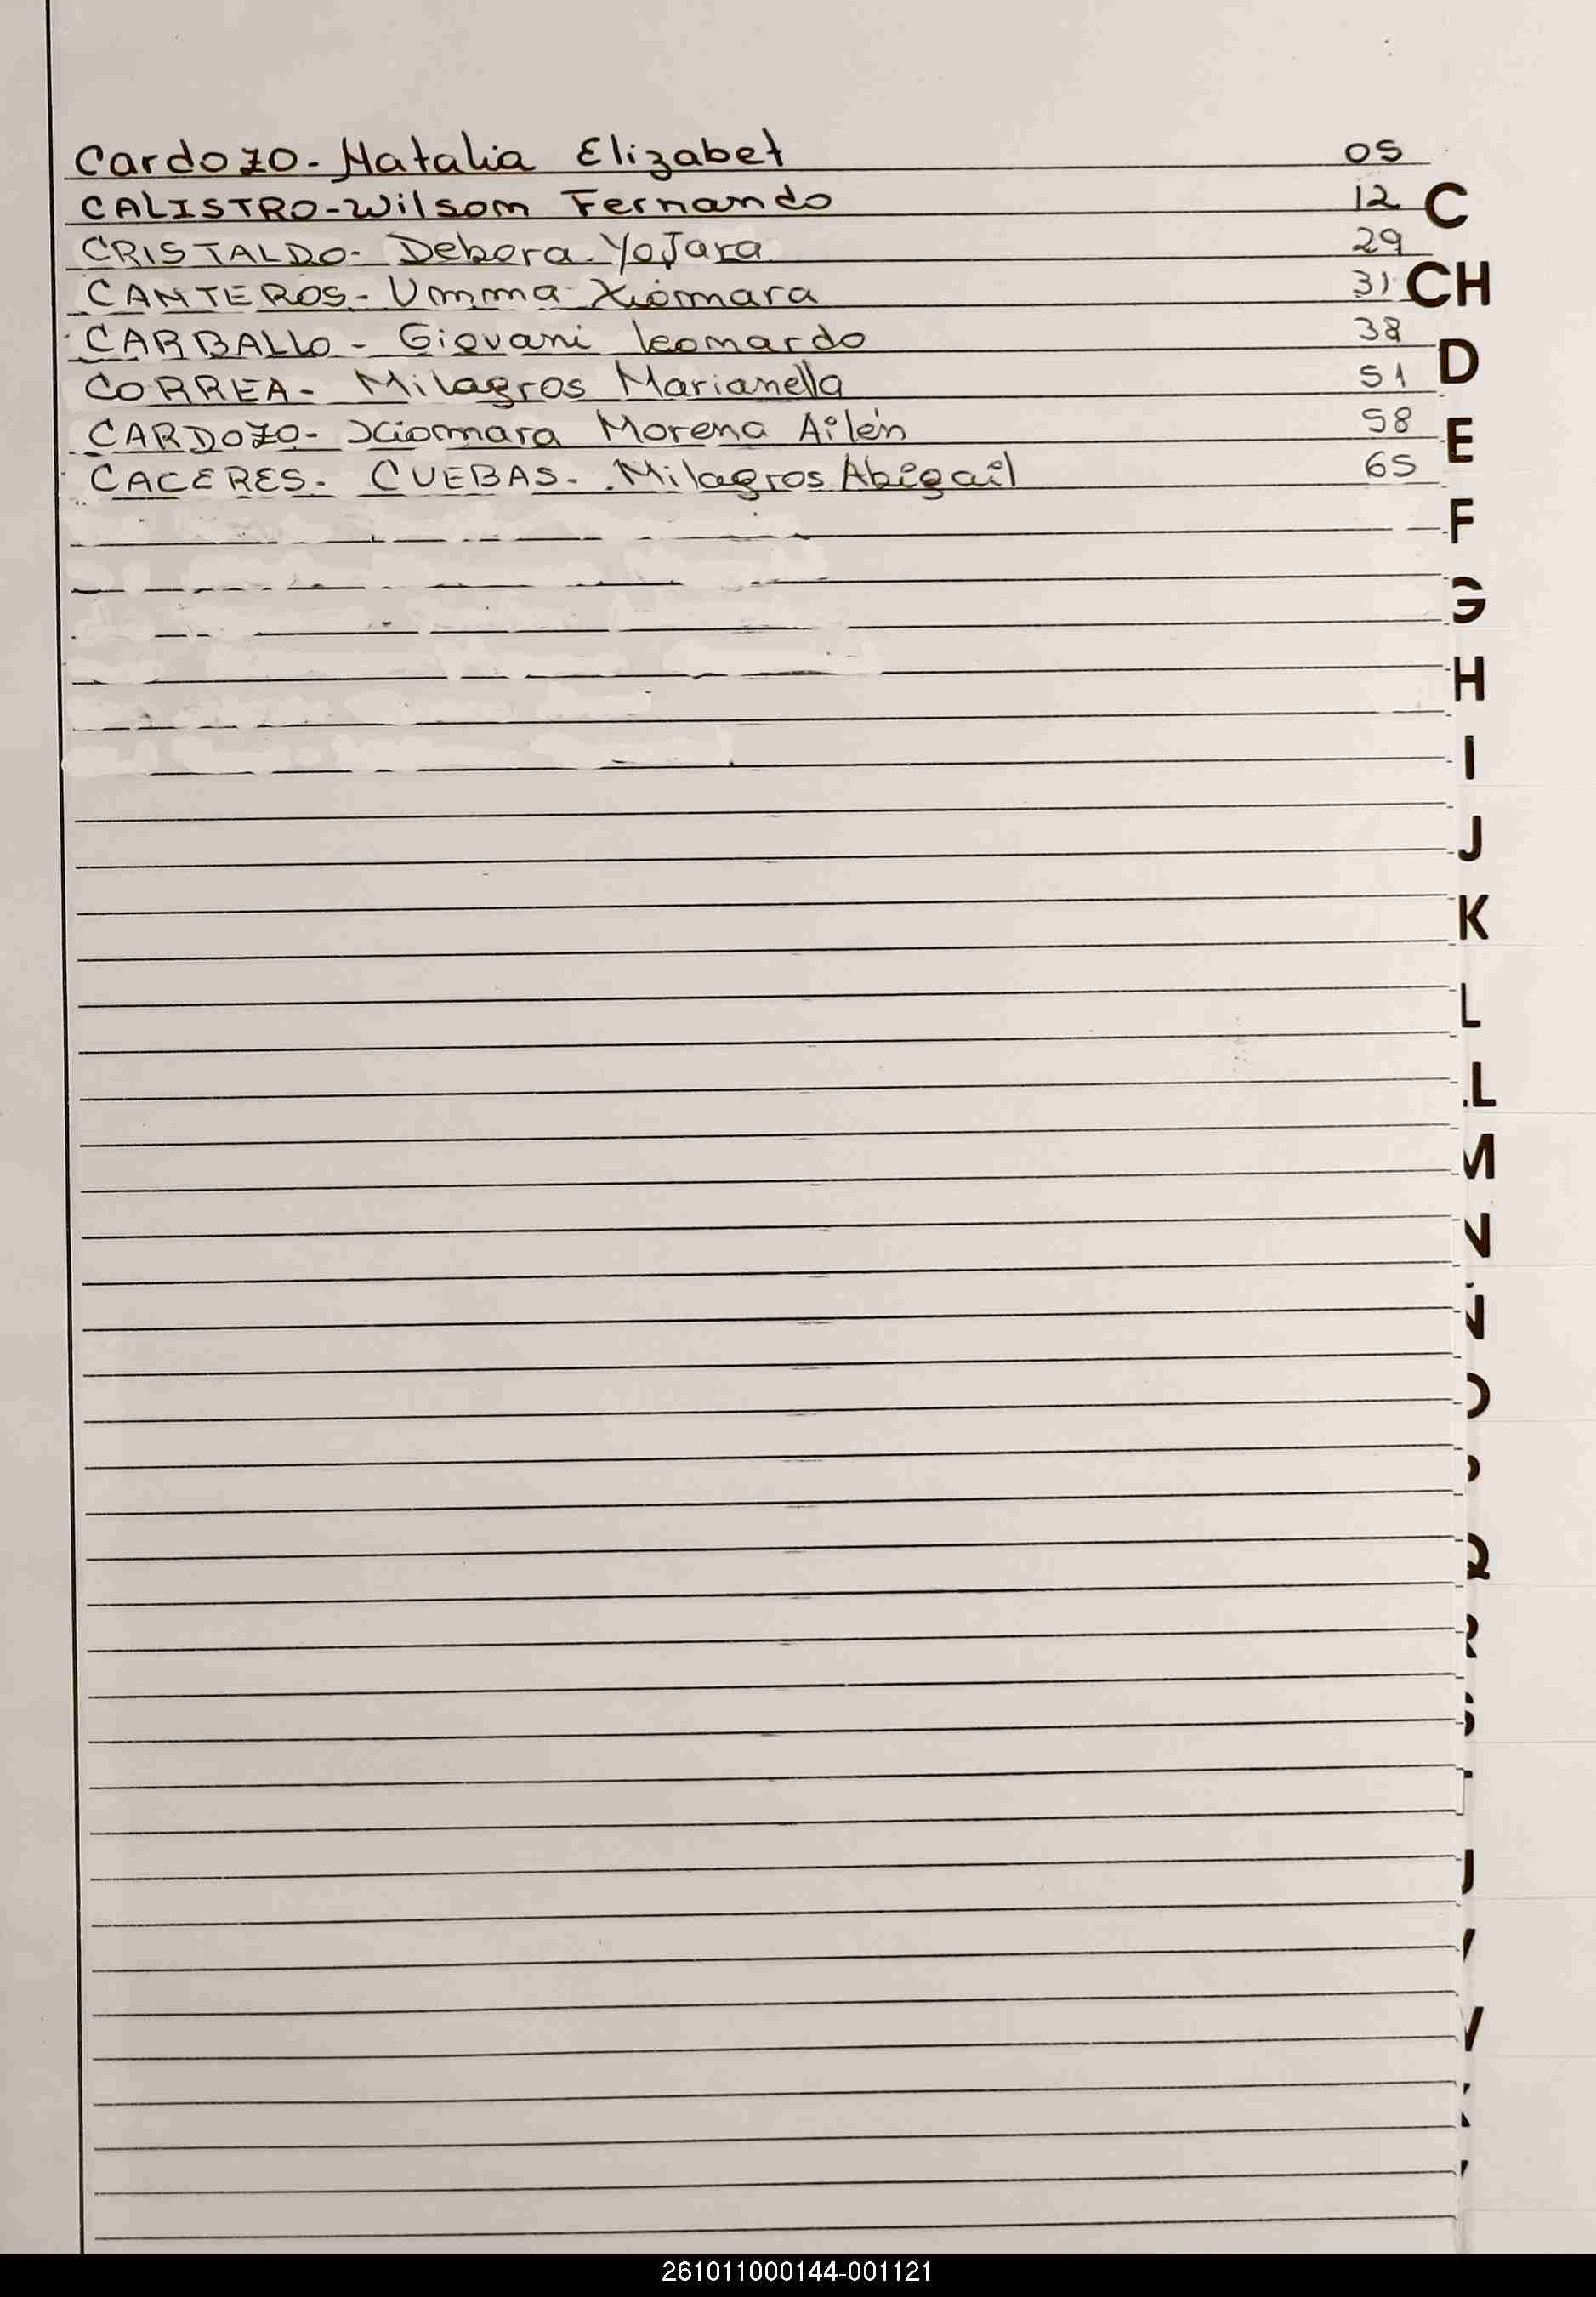 Cardozo - Natalia Elizabet 05
CALISTRO - Wilson Fernando 12
CRISTALDO - Debora Yojara 29
CANTEROS - Umma Xiomara 31
CARBALLO - Giovani Leonardo 38
CORREA - Milagros Marianella 51
CARDOZO - Xiomara Morena Ailén 58
CACERES - CUEBAS - Milagros Abigail 65
C
CH
D
E
F
G
H
I
J
K
L
LL
M
N
Ñ
O
P
Q
R
S
T
U
V
W
X
Y
261011000144-001121